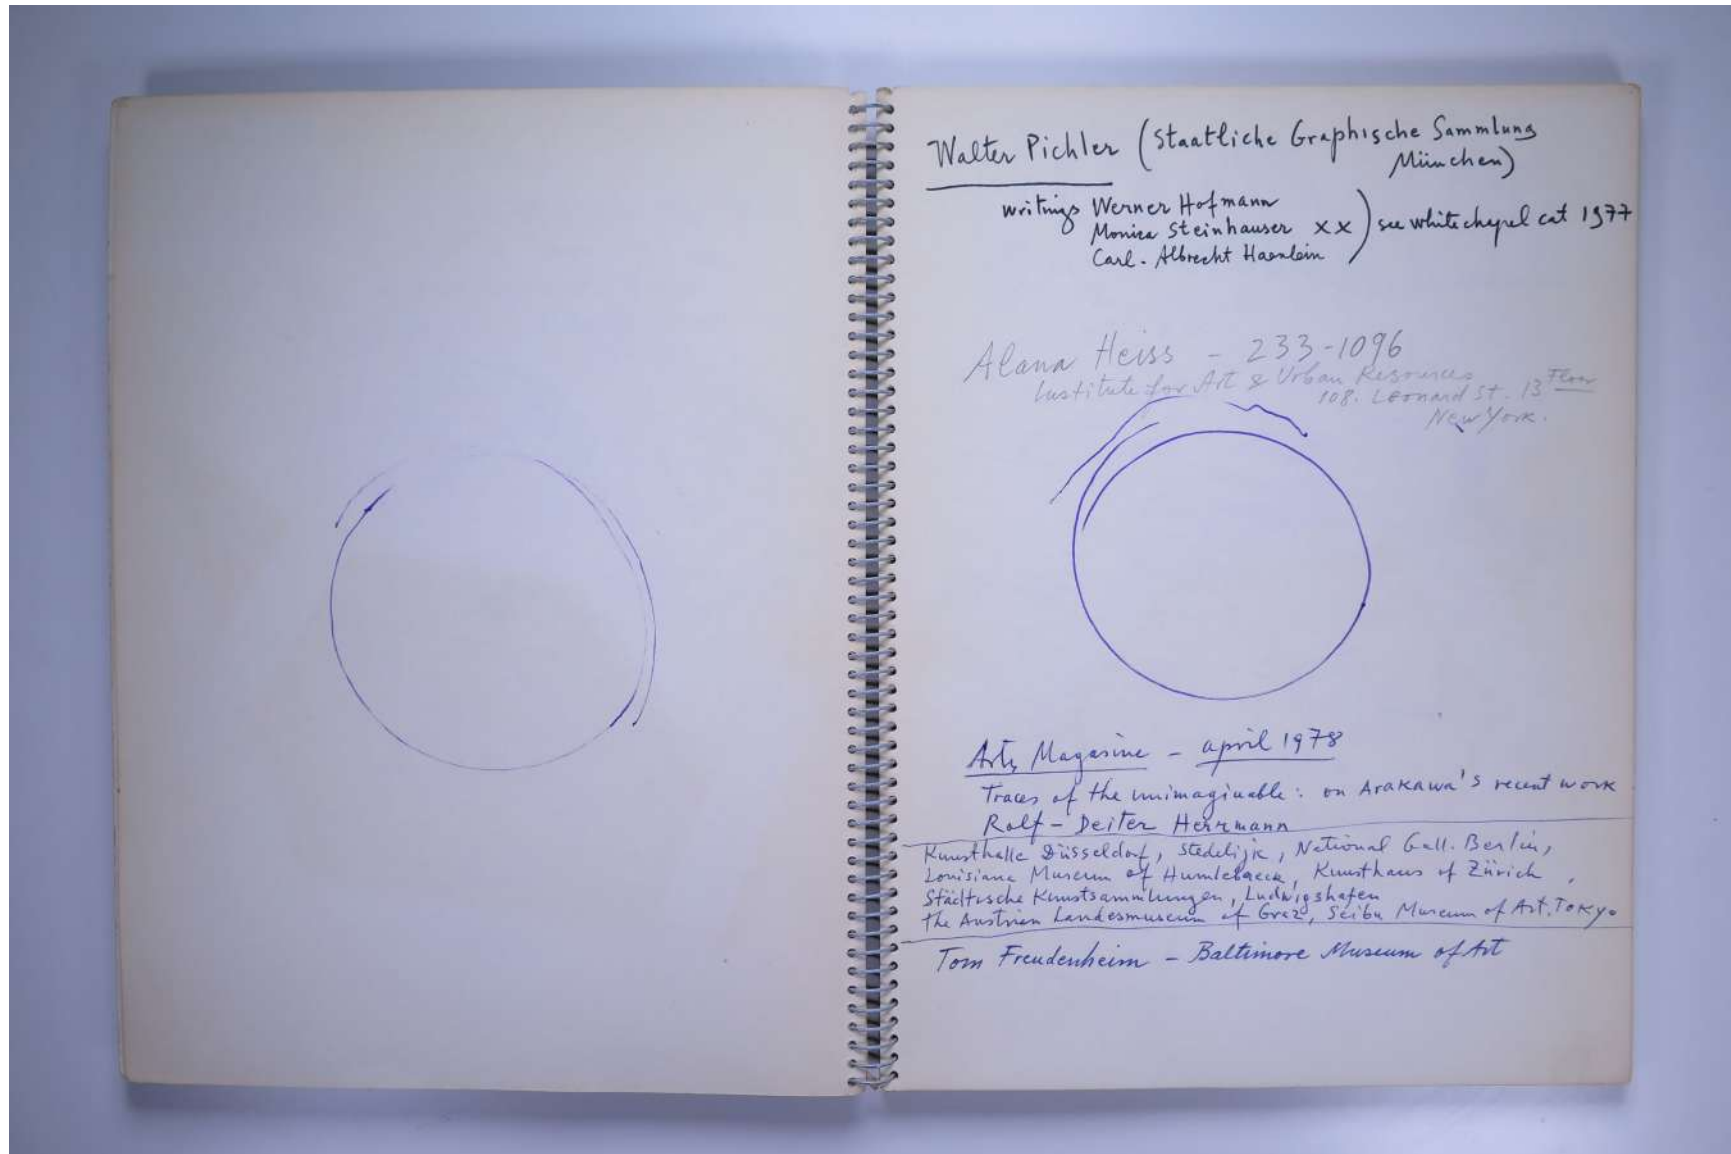 Walter Pichler (Staatliche Graphische Sammlung
München)
writings Werner Hofmann
Monica Steinhauser xx) see whitechapel cat 1977
Carl. Albrecht Haenlein
Alana Heiss - 233-1096
Institute for Art & Urban Resources
108. Leonard St. 13 Floor
New York.
Arts Magasine - april 1978
Traces of the unimaginable: on Arakawa's recent work
Rolf - Deiter Herrmann
Kunsthalle Düsseldorf, Stedelijk, National Gall. Berlin,
Louisiana Museum of Humlebaeck, Kunsthaus of Zürich,
Städtische Kunstsammlungen, Ludwigshafen
The Austrian Landesmuseum of Graz, Seibu Museum of Art. Tokyo
Tom Freudenheim - Baltimore Museum of Art